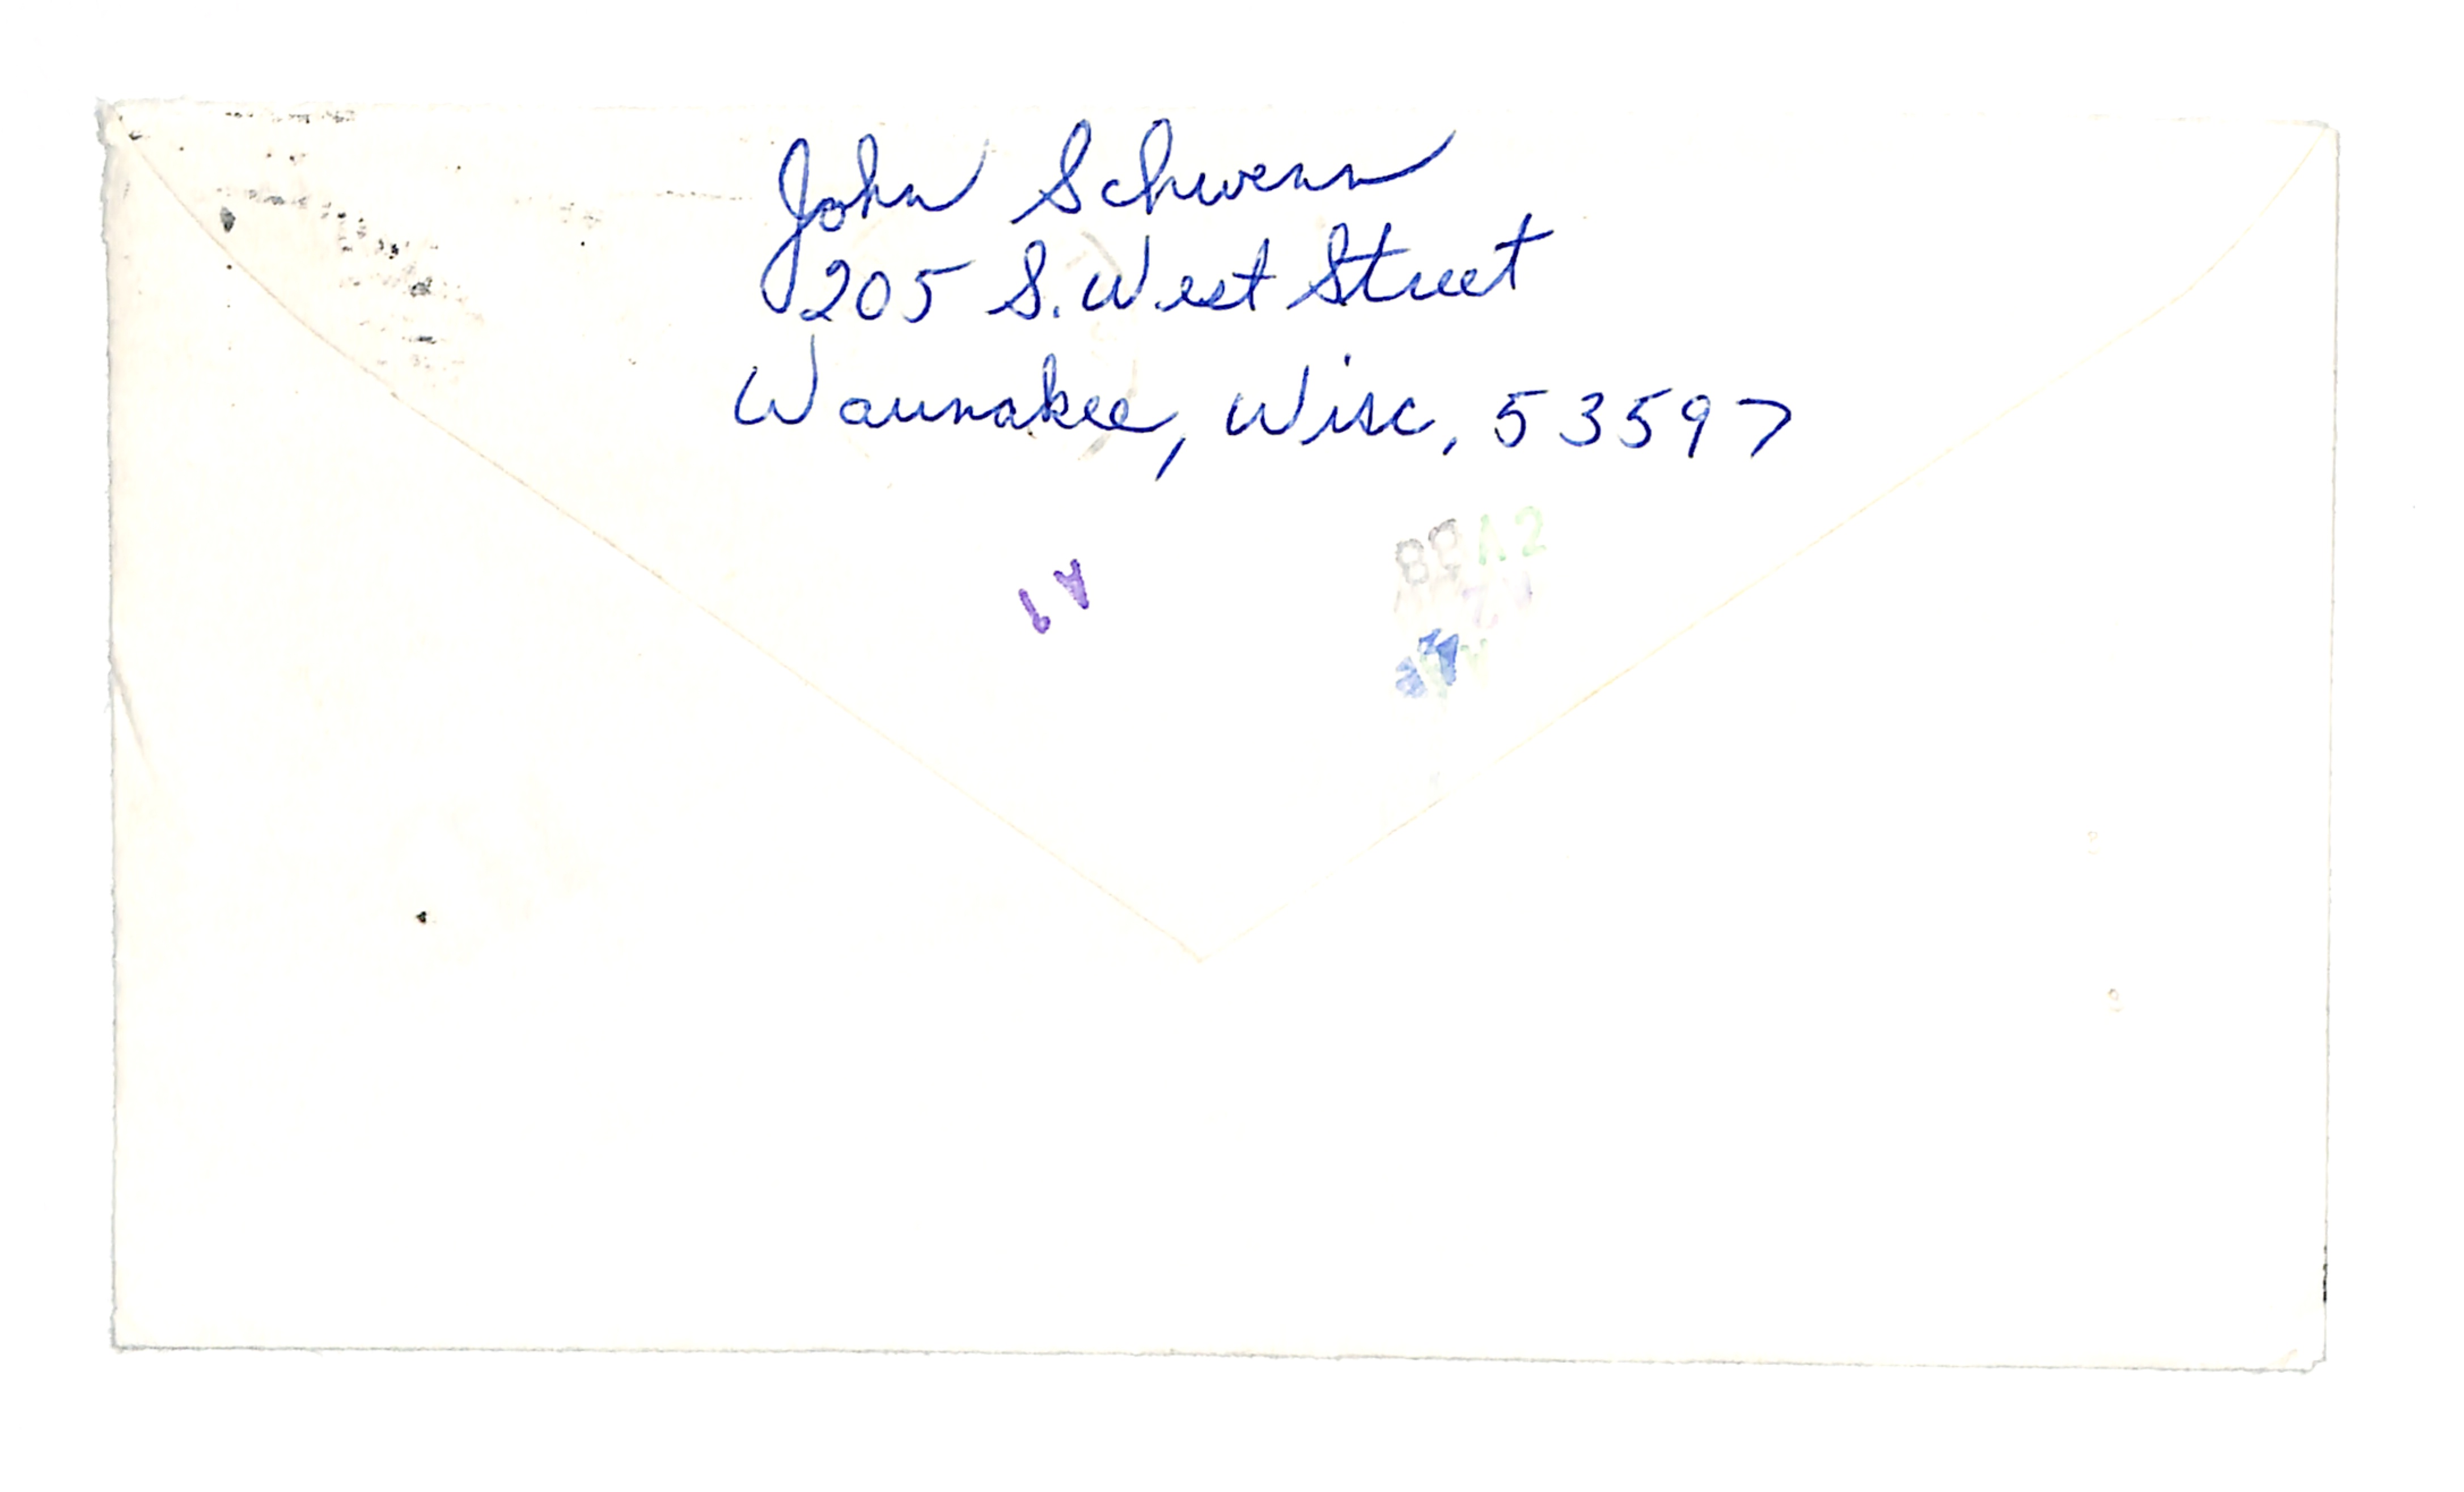 John Schwenn
205 S. West Street
Waunakee, Wisc, 53597